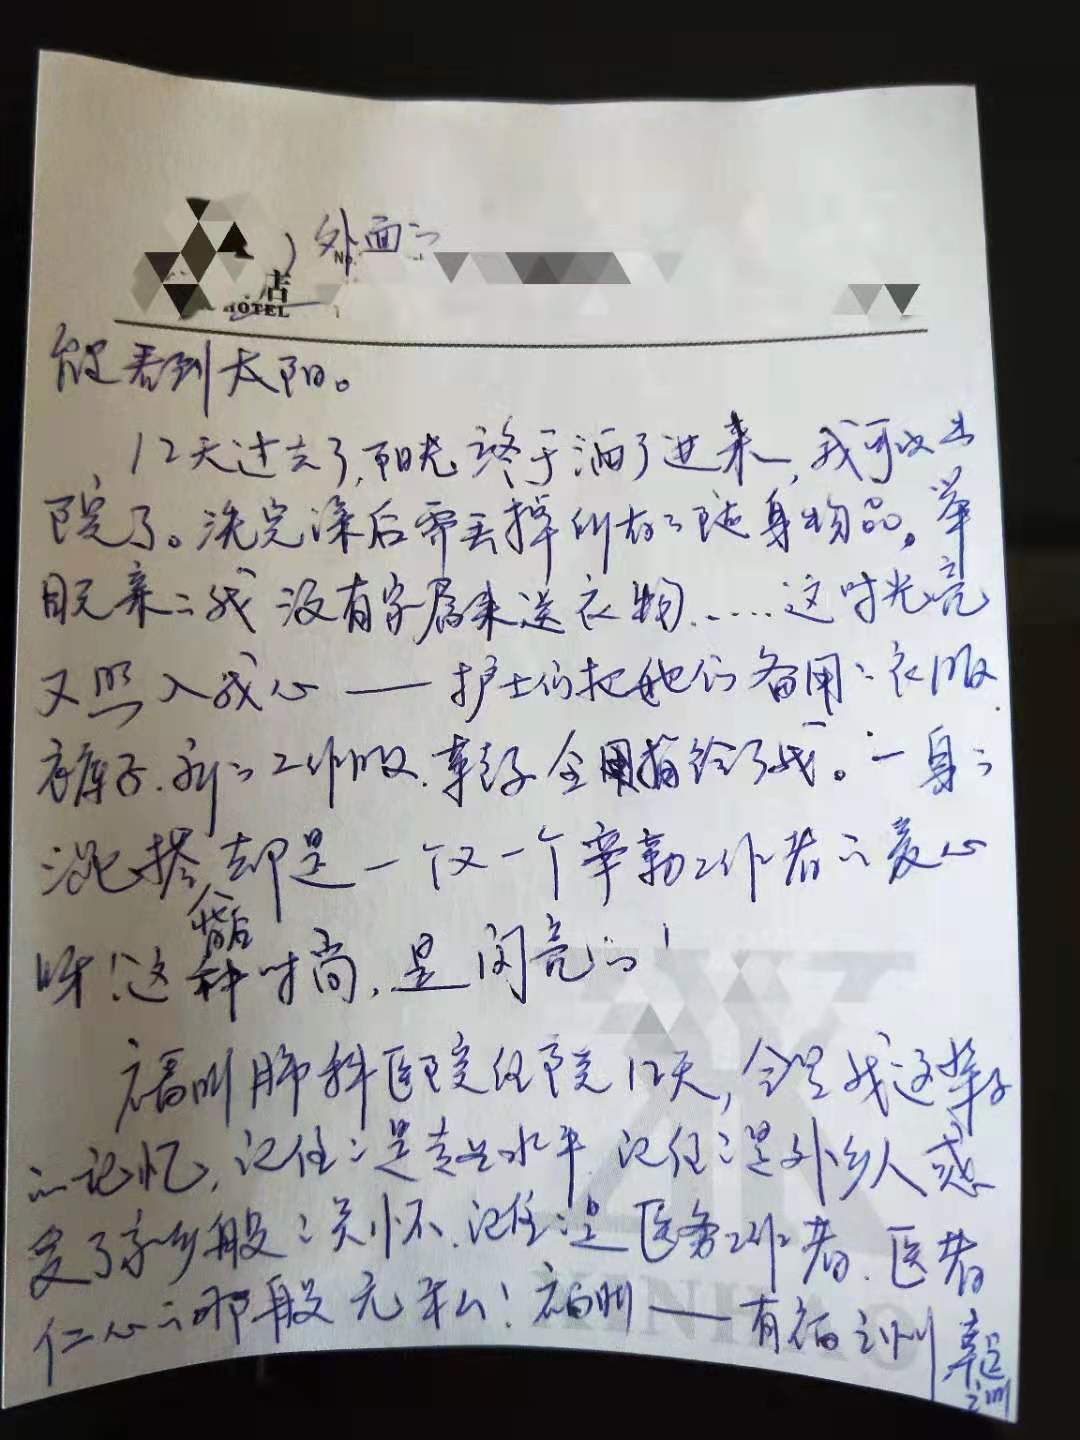 外面的
店
HOTEL
No.
能看到太阳。
12天过去了,阳光终于洒了进来,我可以出
院了。洗完澡后需丢掉所有的随身物品。举
目无亲的我没有家属来送衣物……这时光亮
又照入我心——护士们把她们备用的衣服
裤子.新的工作服.鞋子全捐给了我。一身的
混搭,却是一个又一个辛勤工作者的爱心
背后
呀!这种时尚,是闪亮的!
福州肺科医院住院12天,会是我这辈子
的记忆,记住的是专业水平.记住的是外乡人感
受了家乡般的关怀.记住的是医务工作者.医者
仁心的那般无私!福州——有福之州